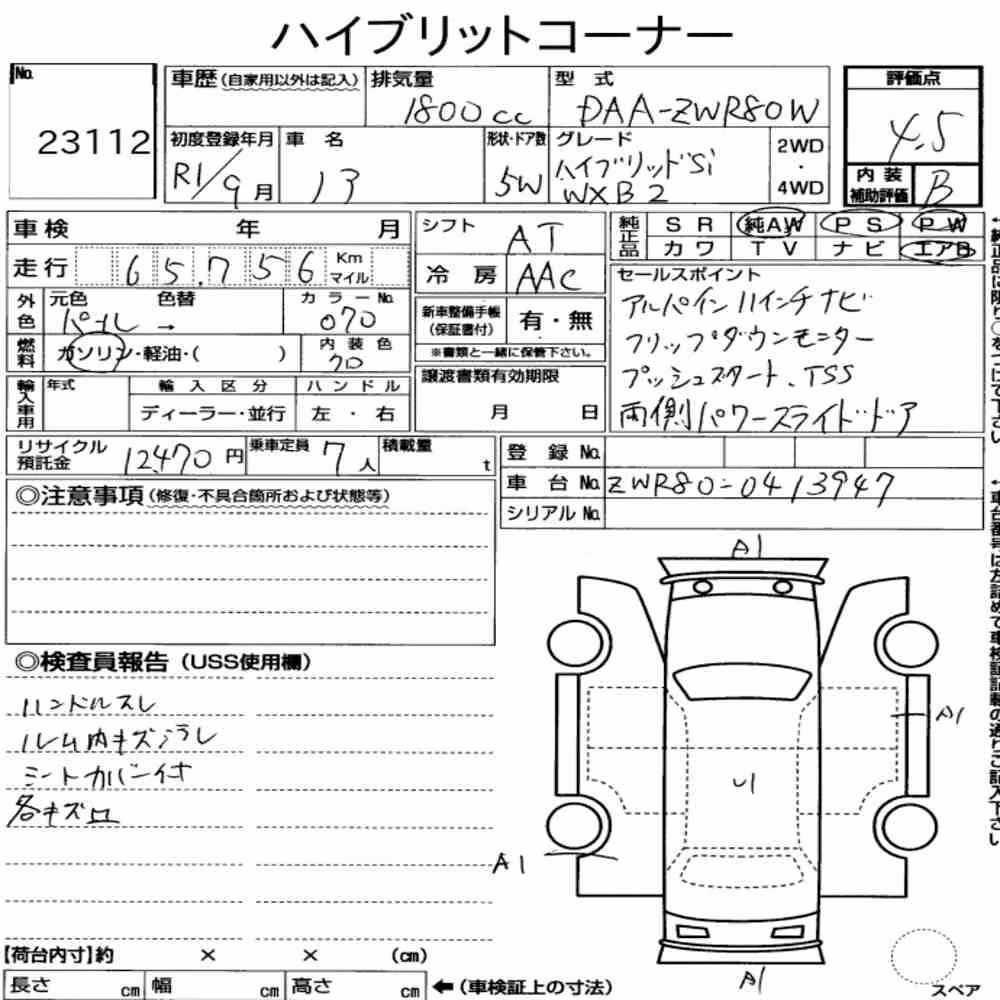 ハイブリットコーナー
No.
23112
車歴(自家用以外は記入)
排気量
1800cc
型式
DAA-ZWR80W
評価点
4.5
初度登録年月
R1/9月
車名
形状・ドア数
5W
グレード
ハイブリッドSi
WXB2
2WD
・
4WD
内装
補助評価
B
車検 年 月
走行 65,756 Km
マイル
シフト
AT
冷房
AAC
純正品
SR 純AW PS PW
カワ TV ナビ エアB
セールスポイント
アルパイン11インチナビ
フリップダウンモニター
プッシュスタート、TSS
両側パワースライドドア
外色
元色 色替
パール →
カラーNo.
070
新車整備手帳
(保証書付)
有・無
※書類と一緒に保管下さい。
燃料
ガソリン・軽油・( )
内装色
譲渡書類有効期限
月 日
輸入車用
年式
輸入区分
ハンドル
ディーラー・並行
左・右
リサイクル
預託金
12,470円
乗車定員
7人
積載量
t
登録No.
車台No. ZWR80-0413947
シリアルNo.
◎注意事項(修復・不具合箇所および状態等)
◎検査員報告(USS使用欄)
ハンドルスレ
ルーム内キズ
シートカバー付
各キズ
A1
A1
U1
A1
A1
【荷台内寸】約 × × (cm)
長さ cm 幅 cm 高さ cm ←(車検証上の寸法)
スペア
←純正品に限り○をつけて下さい
←車台番号は左詰めで車検証記載の通りご記入下さい